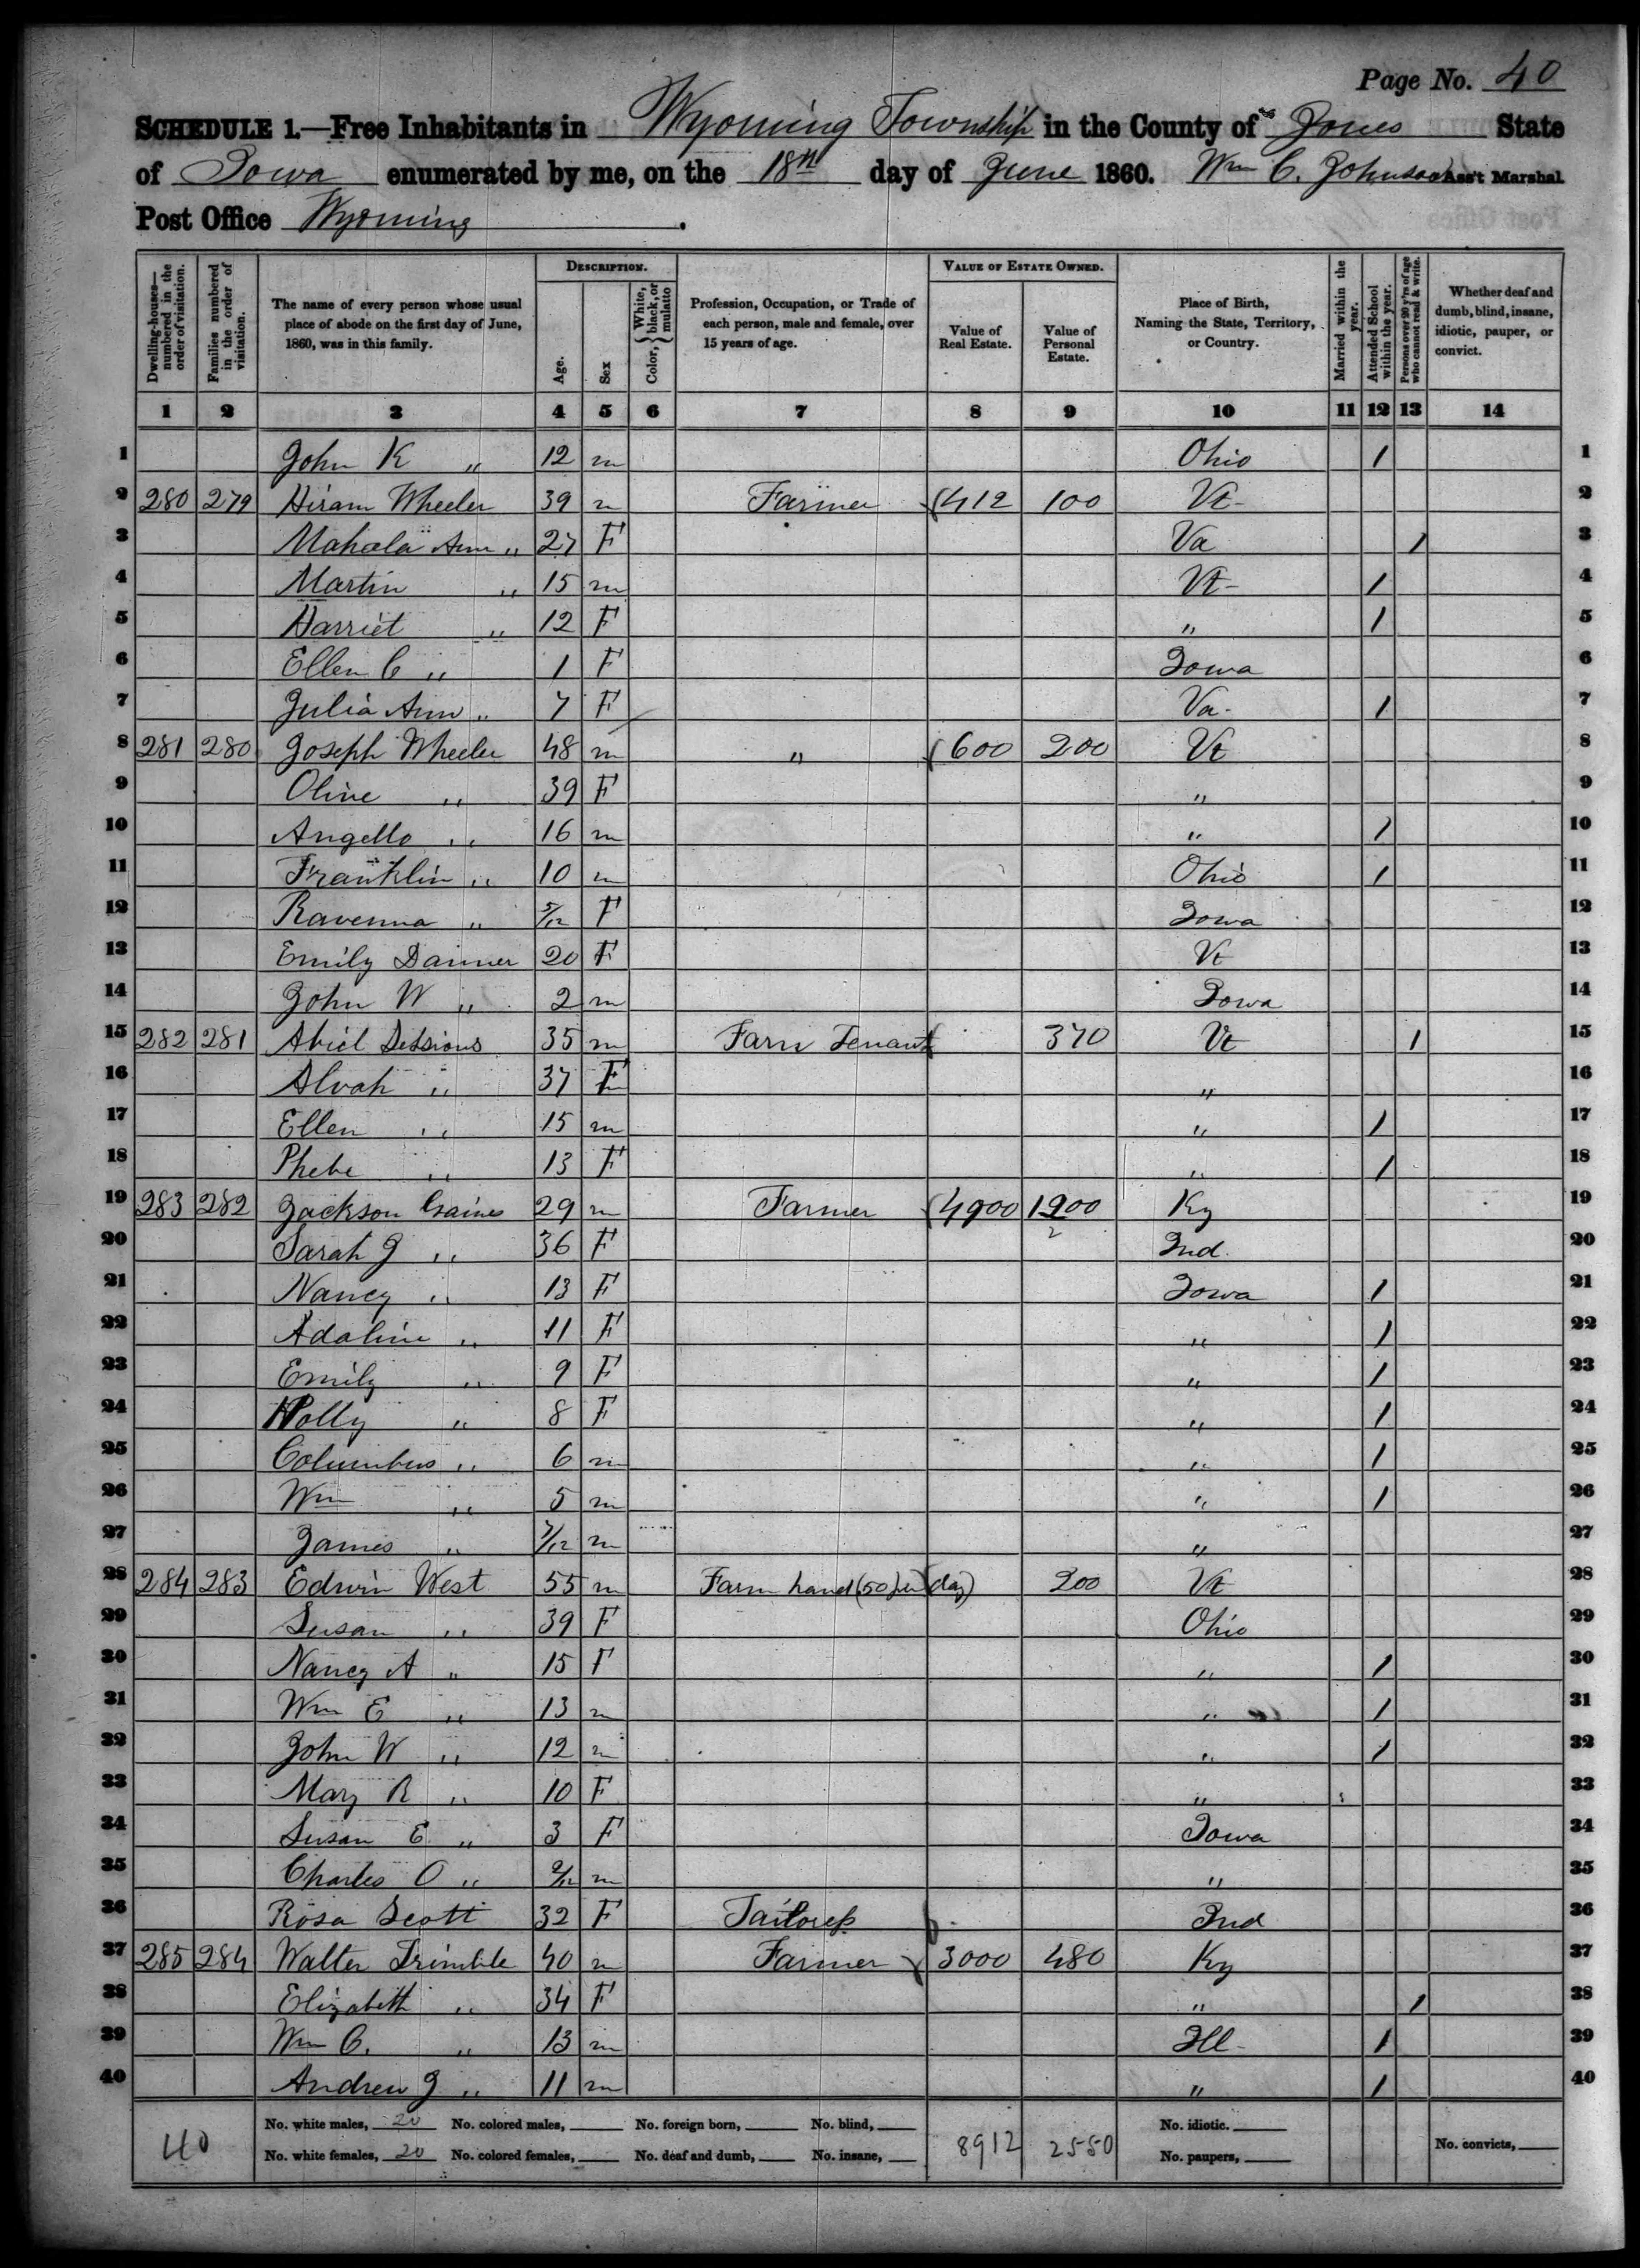 Page No. 40
SCHEDULE 1.—Free Inhabitants in Wyoming Township in the County of Jones State
of Iowa enumerated by me, on the 18th day of June 1860. Wm C. Johnson Ass't Marshal
Post Office Wyoming.
Dwelling-houses—numbered in the order of visitation.
Families numbered in the order of visitation.
The name of every person whose usual place of abode on the first day of June, 1860, was in this family.
DESCRIPTION.
Age.
Sex
Color, { White, black, or mulatto
Profession, Occupation, or Trade of each person, male and female, over 15 years of age.
VALUE OF ESTATE OWNED.
Value of Real Estate.
Value of Personal Estate.
Place of Birth, Naming the State, Territory, or Country.
Married within the year.
Attended School within the year.
Persons over 20 y'rs of age who cannot read & write.
Whether deaf and dumb, blind, insane, idiotic, pauper, or convict.
1 2 3 4 5 6 7 8 9 10 11 12 13 14
1 John K " 12 m Ohio / 1
2 280 279 Hiram Wheeler 39 m Farmer 412 100 Vt 2
3 Mahala Ann " 27 F Va / 3
4 Martin " 15 m Vt / 4
5 Harriet " 12 F " / 5
6 Ellen C " 1 F Iowa 6
7 Julia Ann " 7 F Va / 7
8 281 280 Joseph Wheeler 48 m " 600 200 Vt 8
9 Olive " 39 F " 9
10 Angello " 16 m " / 10
11 Franklin " 10 m Ohio / 11
12 Ravenna " 5/12 F Iowa 12
13 Emily Danner 20 F Vt 13
14 John W " 2 m Iowa 14
15 282 281 Abiel Sessions 35 m Farm Tenant 370 Vt / 15
16 Alvah " 37 F " 16
17 Ellen " 15 m " / 17
18 Phebe " 13 F " / 18
19 283 282 Jackson Gaines 29 m Farmer 4900 1200 Ky 19
20 Sarah J " 36 F Ind. 20
21 Nancy " 13 F Iowa / 21
22 Adaline " 11 F " / 22
23 Emily " 9 F " / 23
24 Polly " 8 F " / 24
25 Columbus " 6 m " / 25
26 Wm " 5 m " / 26
27 James " 7/12 m " 27
28 284 283 Edwin West 55 m Farm hand (50 per day) 200 Vt 28
29 Susan " 39 F Ohio 29
30 Nancy A " 15 F " / 30
31 Wm E " 13 m " / 31
32 John W " 12 m " / 32
33 Mary R " 10 F " 33
34 Susan E " 3 F Iowa 34
35 Charles O " 2/12 m " 35
36 Rosa Scott 32 F Tailoress Ind 36
37 285 284 Walter Trimble 40 m Farmer 3000 480 Ky 37
38 Elizabeth " 34 F " / 38
39 Wm C. " 13 m Ill / 39
40 Andrew J " 11 m " / 40
40
No. white males, 20 No. colored males, No. foreign born, No. blind, 8912 2550 No. idiotic.
No. white females, 20 No. colored females, No. deaf and dumb, No. insane, No. paupers, No. convicts,